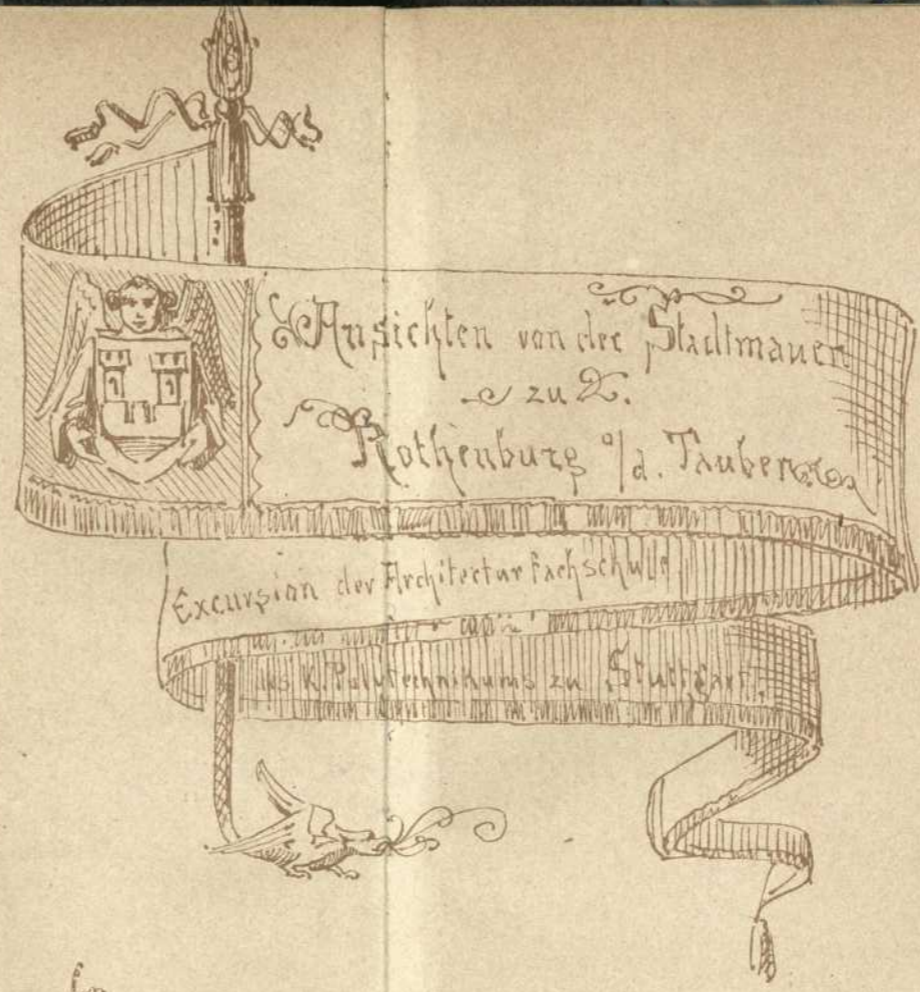 Ansichten von der Stadtmauer
zu
Rothenburg o/d. Tauber
Excursion der Architectur fachschule
des K. Polytechnikums zu Stuttgart.